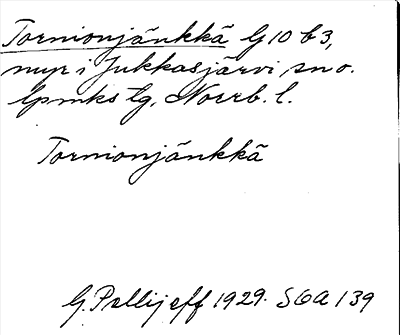 Tornionjänkkä G10 b3,
myr i Jukkasjärvi sn o.
lpmks lg, Norrb. l.
Tornionjänkkä
G. Pellijeff 1929. SOA 139